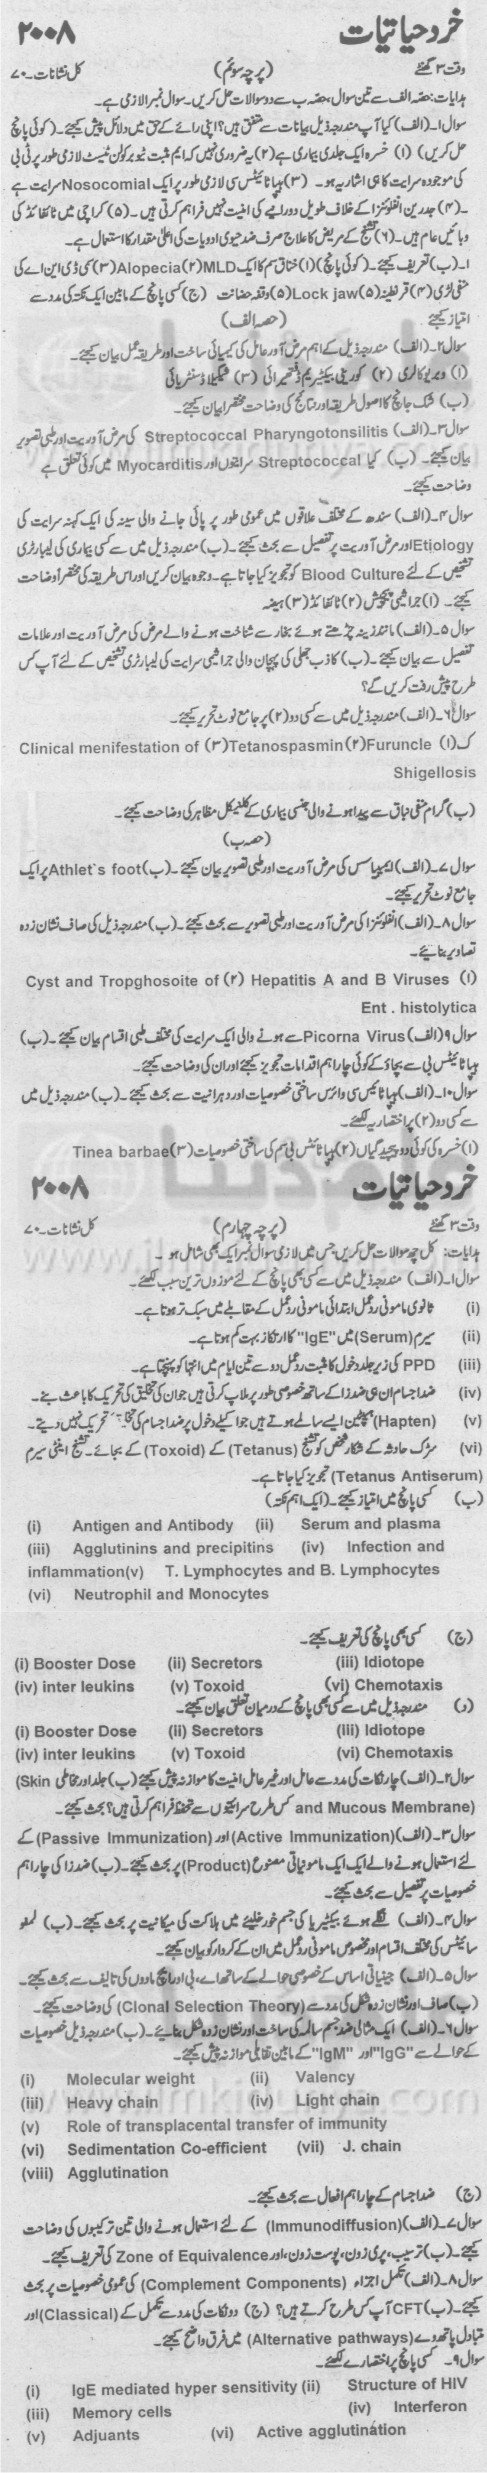 خرد حیاتیات ۲۰۰۸
وقت ۳ گھنٹے (پرچہ سوئم) کل نشانات۔۷۰
ہدایات: حصہ الف سے تین سوال، حصہ ب سے دو سوالات حل کریں۔ سوال نمبر ۱ لازمی ہے۔
سوال۱۔(الف) کیا آپ مندرجہ ذیل بیانات سے متفق ہیں؟ اپنی رائے کے حق میں دلائل پیش کیجئے۔ (کوئی پانچ
حل کریں) (۱) خسرہ ایک جلدی بیماری ہے (۲) یہ ضروری نہیں کہ ایم مثبت ٹیوبر کولن ٹیسٹ لازمی طور پر ٹی بی
کی موجودہ سرایت کا ہی اشاریہ ہو۔ (۳) ہیپاٹائٹس سی لازمی طور پر ایک Nosocomial سرایت ہے
۔(۴) جدرین انفلوئنزا کے خلاف طویل دورانیے کی امنیت نہیں فراہم کرتی ہیں۔ (۵) کراچی میں ٹائفائڈ کی
وبائیں عام ہیں۔ (۶) تشنج کے مریض کا علاج صرف ضد حیوی ادویات کی اعلیٰ مقدار کا استعمال ہے۔
۱۔(ب) تعریف کیجئے۔ (کوئی پانچ) (۱) خناق سم کا ایک MLD (۲) Alopecia (۳) سی ڈی این اے کی
منفی لڑی (۴) قرنطینہ (۵) Lock jaw (۵) وقفہ حضانت (ج) کسی پانچ کے مابین ایک نکتہ کی مدد سے
امتیاز کیجئے (حصہ الف)
سوال۲۔(الف) مندرجہ ذیل کے اہم مرض آور عامل کی کیمیائی ساخت اور طریقہ عمل بیان کیجئے۔
(۱) وبریو کالری (۲) کورینی بیکٹیریم ڈفتھیرائی (۳) شیگیلا ڈسنٹریائی
(ب) شک جانچ کا اصول طریقہ اور نتائج کی وضاحت مختصراً بیان کیجئے۔
سوال۳۔(الف) Streptococcal Pharyngotonsilitis کی مرض آوریت اور طبی تصویر
بیان کیجئے۔ (ب) کیا Streptococcal سرایتوں اور Myocarditis میں کوئی تعلق ہے
وضاحت کیجئے۔
سوال۴۔(الف) سندھ کے مختلف علاقوں میں عمومی طور پر پائی جانے والی سینہ کی ایک کہنہ سرایت کی
Etiology اور مرض آوریت پر تفصیل سے بحث کیجئے۔ (ب) مندرجہ ذیل میں سے کسی بیماری کی لیبارٹری
تشخیص کے لئے Blood Culture کو تجویز کیا جاتا ہے۔ وجوہ بیان کریں اور اس طریقہ کی مختصراً وضاحت
کیجئے۔ (۱) جراثیمی پیچش (۲) ٹائفائڈ (۳) ہیضہ
سوال۵۔(الف) مانند زینہ چڑھتے ہوئے بخار سے شناخت ہونے والے مرض کی مرض آوریت اور علامات
تفصیل سے بیان کیجئے۔ (ب) کاذب جھلی کی پہچان والی جراثیمی سرایت کی لیبارٹری تشخیص کے لئے آپ کس
طرح پیش رفت کریں گے؟
سوال۶۔(الف) مندرجہ ذیل میں سے کسی دو (۲) پر جامع نوٹ تحریر کیجئے۔
ک (۱) Furuncle (۲) Tetanospasmin (۳) Clinical menifestation of
Shigellosis
(ب) گرام منفی نباق سے پیدا ہونے والی جنسی بیماری کے کلینیکل مظاہر کی وضاحت کیجئے۔
(حصہ ب)
سوال۷۔(الف) ایمیبیاسس کی مرض آوریت اور طبی تصویر بیان کیجئے۔ (ب) Athlet`s foot پر ایک
جامع نوٹ تحریر کیجئے۔
سوال۸۔(الف) انفلوئنزا کی مرض آوریت اور طبی تصویر سے بحث کیجئے۔ (ب) مندرجہ ذیل کی صاف نشان زدہ
تصاویر بنائیے۔
(۱) Hepatitis A and B Viruses (۲) Cyst and Tropghosoite of
Ent . histolytica
سوال۹(الف) Picorna Virus سے ہونے والی ایک سرایت کی مختلف طبی اقسام بیان کیجئے۔ (ب)
ہیپاٹائٹس بی سے بچاؤ کے کوئی چار اہم اقدامات تجویز کیجئے اور ان کی وضاحت کیجئے۔
سوال۱۰۔(الف) ہیپاٹائیس سی وائرس ساختی خصوصیات اور دہرانیت سے بحث کیجئے۔ (ب) مندرجہ ذیل میں
سے کسی دو (۲) پر اختصاریہ لکھئے۔
(۱) خسرہ کی کوئی دو پیچیدگیاں (۲) ہیپاٹائٹس بی سم کی ساختی خصوصیات (۳) Tinea barbae
خرد حیاتیات ۲۰۰۸
وقت ۳ گھنٹے (پرچہ چہارم) کل نشانات۔۷۰
ہدایات: کل چھ سوالات حل کریں جس میں لازمی سوال نمبر ایک بھی شامل ہو۔
سوال۱۔(الف) مندرجہ ذیل میں سے کسی بھی پانچ کے لئے موزوں ترین سبب لکھئے۔
(i) ثانوی مامونی ردعمل ابتدائی مامونی ردعمل کے مقابلے میں سبک تر ہوتا ہے۔
(ii) سیرم (Serum) میں "IgE" کا ارتکاز بہت کم ہوتا ہے۔
(iii) PPD کی زیر جلد دخول کا مثبت ردعمل دو سے تین ایام میں انتہا کو پہنچتا ہے۔
(iv) ضد اجسام ان ہی ضد زا کے ساتھ خصوصی طور پر ملاپ کرتی ہیں جو ان کی تخلیق کی تحریک کا باعث بنے۔
(v) (Hapten) ہیپٹین ایسے سالمے ہوتے ہیں جو اکیلے دخول پر ضد اجسام کی تحریک نہیں دیتے۔
(vi) سڑک حادثہ کے شکار شخص کو تشنج (Tetanus) کے (Toxoid) کے بجائے۔ تشنج اینٹی سیرم
(Tetanus Antiserum) تجویز کیا جاتا ہے۔
(ب) کسی پانچ میں امتیاز کیجئے۔ (ایک اہم نکتہ)
(i) Antigen and Antibody (ii) Serum and plasma
(iii) Agglutinins and precipitins (iv) Infection and
inflammation(v) T. Lymphocytes and B. Lymphocytes
(vi) Neutrophil and Monocytes
(ج) کسی بھی پانچ کی تعریف کیجئے۔
(i) Booster Dose (ii) Secretors (iii) Idiotope
(iv) inter leukins (v) Toxoid (vi) Chemotaxis
(د) مندرجہ ذیل میں سے کسی بھی پانچ کے درمیان تعلق بیان کیجئے۔
(i) Booster Dose (ii) Secretors (iii) Idiotope
(iv) inter leukins (v) Toxoid (vi) Chemotaxis
سوال۲۔(الف) چار نکات کی مدد سے عامل اور غیر عامل امنیت کا موازنہ پیش کیجئے (ب) جلد اور مخاطی (Skin
and Mucous Membrane) کس طرح سرایتوں سے تحفظ فراہم کرتی ہیں؟ بحث کیجئے۔
سوال۳۔(الف) (Active Immunization) اور (Passive Immunization) کے
لئے استعمال ہونے والے ایک ایک مامونیاتی مصنوع (Product) پر بحث کیجئے۔ (ب) ضد زا کی چار اہم
خصوصیات پر تفصیل سے بحث کیجئے۔
سوال۴۔(الف) نگلے ہوئے بیکٹیریا کی جسم خور خلیئے میں ہلاکت کی میکانیت پر بحث کیجئے۔ (ب) لمفو
سائٹس کی مختلف اقسام اور مخصوص مامونی ردعمل میں ان کے کردار کو بیان کیجئے۔
سوال۵۔(الف) جینیاتی اساس کے خصوصی حوالے کے ساتھ اے، بی اور ایچ مادوں کی تالیف سے بحث کیجئے۔
(ب) صاف اور نشان زدہ شکل کی مدد سے (Clonal Selection Theory) کی وضاحت کیجئے۔
سوال۶۔(الف) ایک مثالی ضد جسم سالمہ کی ساخت اور نشان زدہ شکل بنائیے۔ (ب) مندرجہ ذیل خصوصیات
کے حوالے سے "IgG" اور "IgM" کے مابین تقابلی موازنہ پیش کیجئے۔
(i) Molecular weight (ii) Valency
(iii) Heavy chain (iv) Light chain
(v) Role of transplacental transfer of immunity
(vi) Sedimentation Co-efficient (vii) J. chain
(viii) Agglutination
(ج) ضد اجسام کے چار اہم افعال سے بحث کیجئے۔
سوال۷۔(الف) (Immunodiffusion) کے لئے استعمال ہونے والی تین ترکیبوں کی وضاحت
کیجئے۔ (ب) ترسیب، پری زون، پوسٹ زون، اور Zone of Equivalence کی تعریف کیجئے۔
سوال۸۔(الف) تکمل اجزاء (Complement Components) کی عمومی خصوصیات پر بحث
کیجئے۔ (ب) CFT آپ کس طرح کرتے ہیں؟ (ج) دو نکات کی مدد سے تکمل کے (Classical) اور
متبادل پاتھ وے (Alternative pathways) میں فرق واضح کیجئے۔
سوال۹۔ کسی پانچ پر اختصاریے لکھئے۔
(i) IgE mediated hyper sensitivity (ii) Structure of HIV
(iii) Memory cells (iv) Interferon
(v) Adjuants (vi) Active agglutination